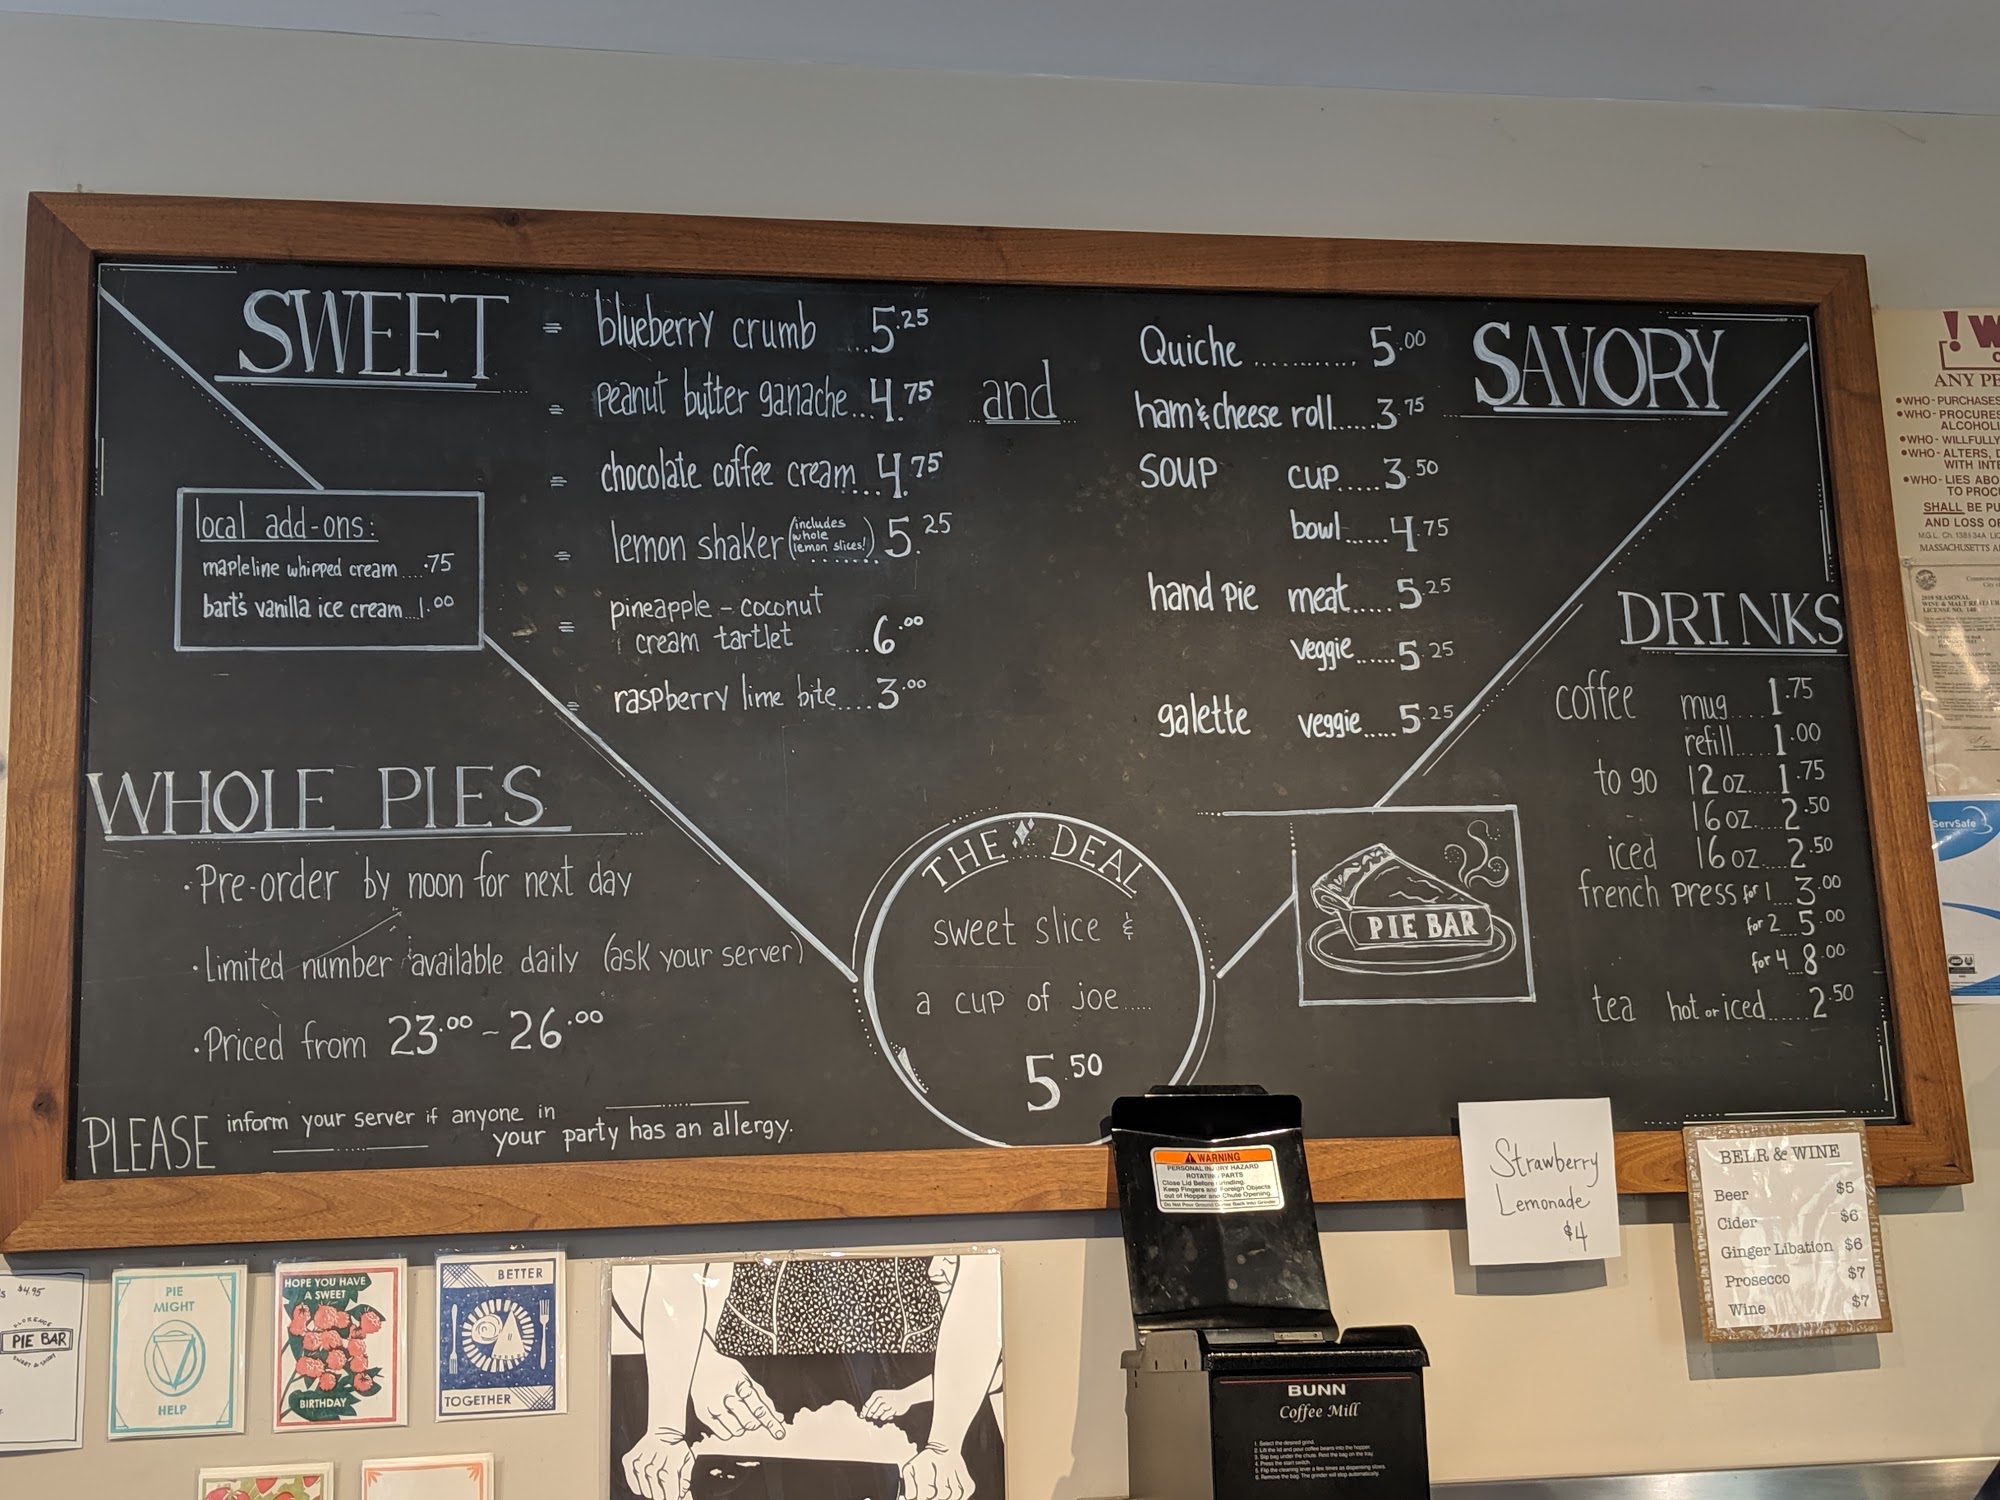 SWEET
= blueberry crumb ...5.25
= peanut butter ganache...4.75
= chocolate coffee cream...4.75
= lemon shaker (includes whole lemon slices!) 5.25
= pineapple - coconut
cream tartlet ...6.00
= raspberry lime bite....3.00
and
local add-ons:
mapleline whipped cream ....75
bart's vanilla ice cream...1.00
SAVORY
Quiche ............ 5.00
ham & cheese roll......3.75
SOUP cup.....3.50
bowl......4.75
hand pie meat.....5.25
veggie......5.25
galette veggie.....5.25
DRINKS
coffee mug....1.75
refill....1.00
to go 12 oz....1.75
16 oz....2.50
iced 16 oz....2.50
french press for 1....3.00
for 2...5.00
for 4...8.00
tea hot or iced......2.50
WHOLE PIES
· Pre-order by noon for next day
· Limited number available daily (ask your server)
· Priced from 23.00 - 26.00
PLEASE inform your server if anyone in
your party has an allergy.
THE DEAL
sweet slice &
a cup of joe.....
5.50
PIE BAR
Strawberry
Lemonade
$4
BEER & WINE
Beer $5
Cider $6
Ginger Libation $6
Prosecco $7
Wine $7
WARNING
PERSONAL INJURY HAZARD
ROTATING PARTS
Close Lid Before Grinding.
Keep Fingers and Foreign Objects
out of Hopper and Chute Opening.
BUNN
Coffee Mill
$4.95
FLORENCE
PIE BAR
SWEET & SAVORY
PIE
MIGHT
HELP
HOPE YOU HAVE
A SWEET
BIRTHDAY
BETTER
TOGETHER
! W
ANY PE
• WHO - PURCHASES
• WHO - PROCURES
ALCOHOLI
• WHO - WILLFULLY
• WHO - ALTERS, D
WITH INTE
• WHO - LIES ABO
TO PROCU
SHALL BE PU
AND LOSS O
MASSACHUSETTS A
ServSafe